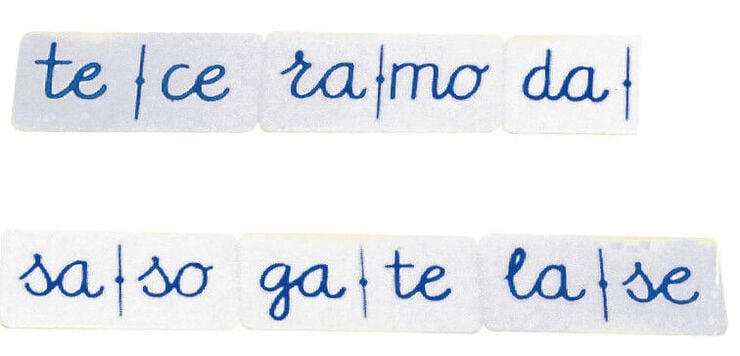 te | ce ra | mo da |
sa | so ga | te la | se